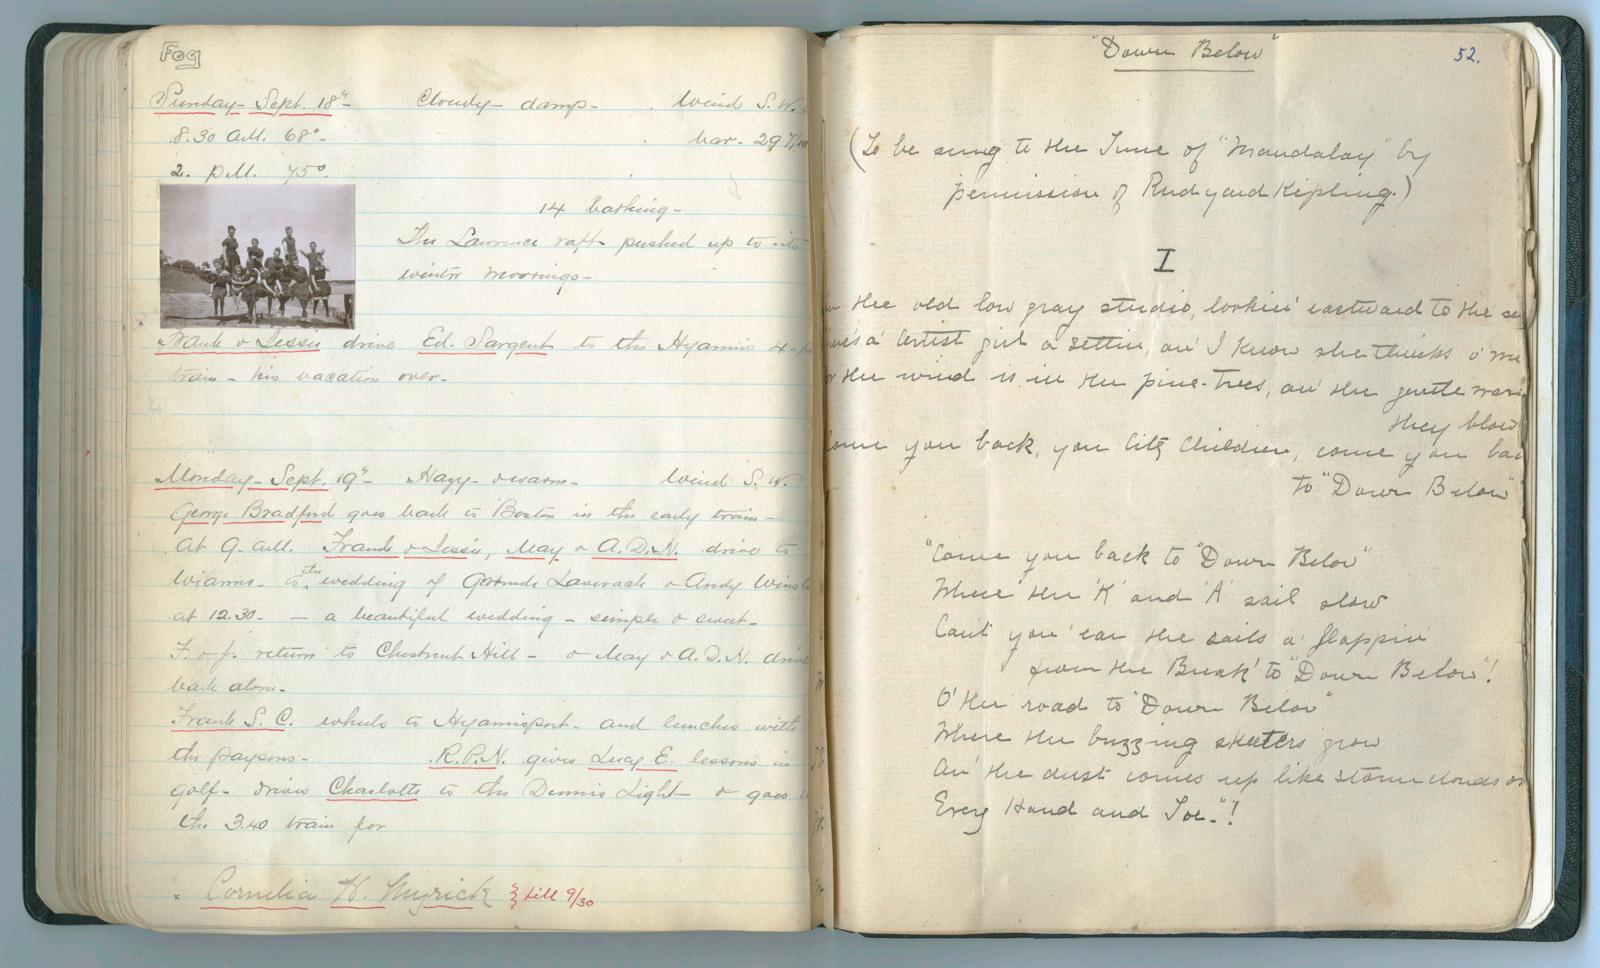 Fog
Sunday - Sept. 18" - Cloudy - damp - Wind S. W.
8.30 A.M. 68° - bar - 29 7/10
2. P.M. 75°.
14 bathing -
The Lawrence raft pushed up to its
winter moorings -
Frank & Jessie drive Ed. Sargent to the Hyannis 4-
train - his vacation over -
Monday - Sept. 19" - Hazy - & warm - Wind S. W.
George Bradford goes back to Boston in the early train -
At 9. A.M. Frank & Jessie, May & A.D.N. drive to
Wianno - to the wedding of Gertrude & Andy
at 12.30 - - a beautiful wedding - simple & sweet -
F. & J. return to Chestnut Hill - & May & A.D.N. drive
back alone -
Frank S. C. wheels to Hyannisport - and lunches with
the Paysons - R.P.N. gives Lucy E. lessons in
golf - drives Charlotte to the Dennis Light - & goes
the 3.40 train for
Cornelia H. Myrick till 9/30
"Down Below" 52.
(To be sung to the Tune of "Mandalay" by
permission of Rudyard Kipling.)
I
the old low gray studio, lookin' eastward to the
a' Artist girl a settin', an' I know she thinks o' me
the wind is in the pine-trees, an' the gentle
they blow
you back, you City Children, come you
to "Down Below"
"Come you back to "Down Below"
Where the 'K' and 'A' sail slow
Can't you 'ear the sails a' flappin
from the Break' to "Down Below"!
O' the road to "Down Below"
Where the buzzing skeeters grow
An' the dust comes up like storm clouds on
Every Hand and Toe."!